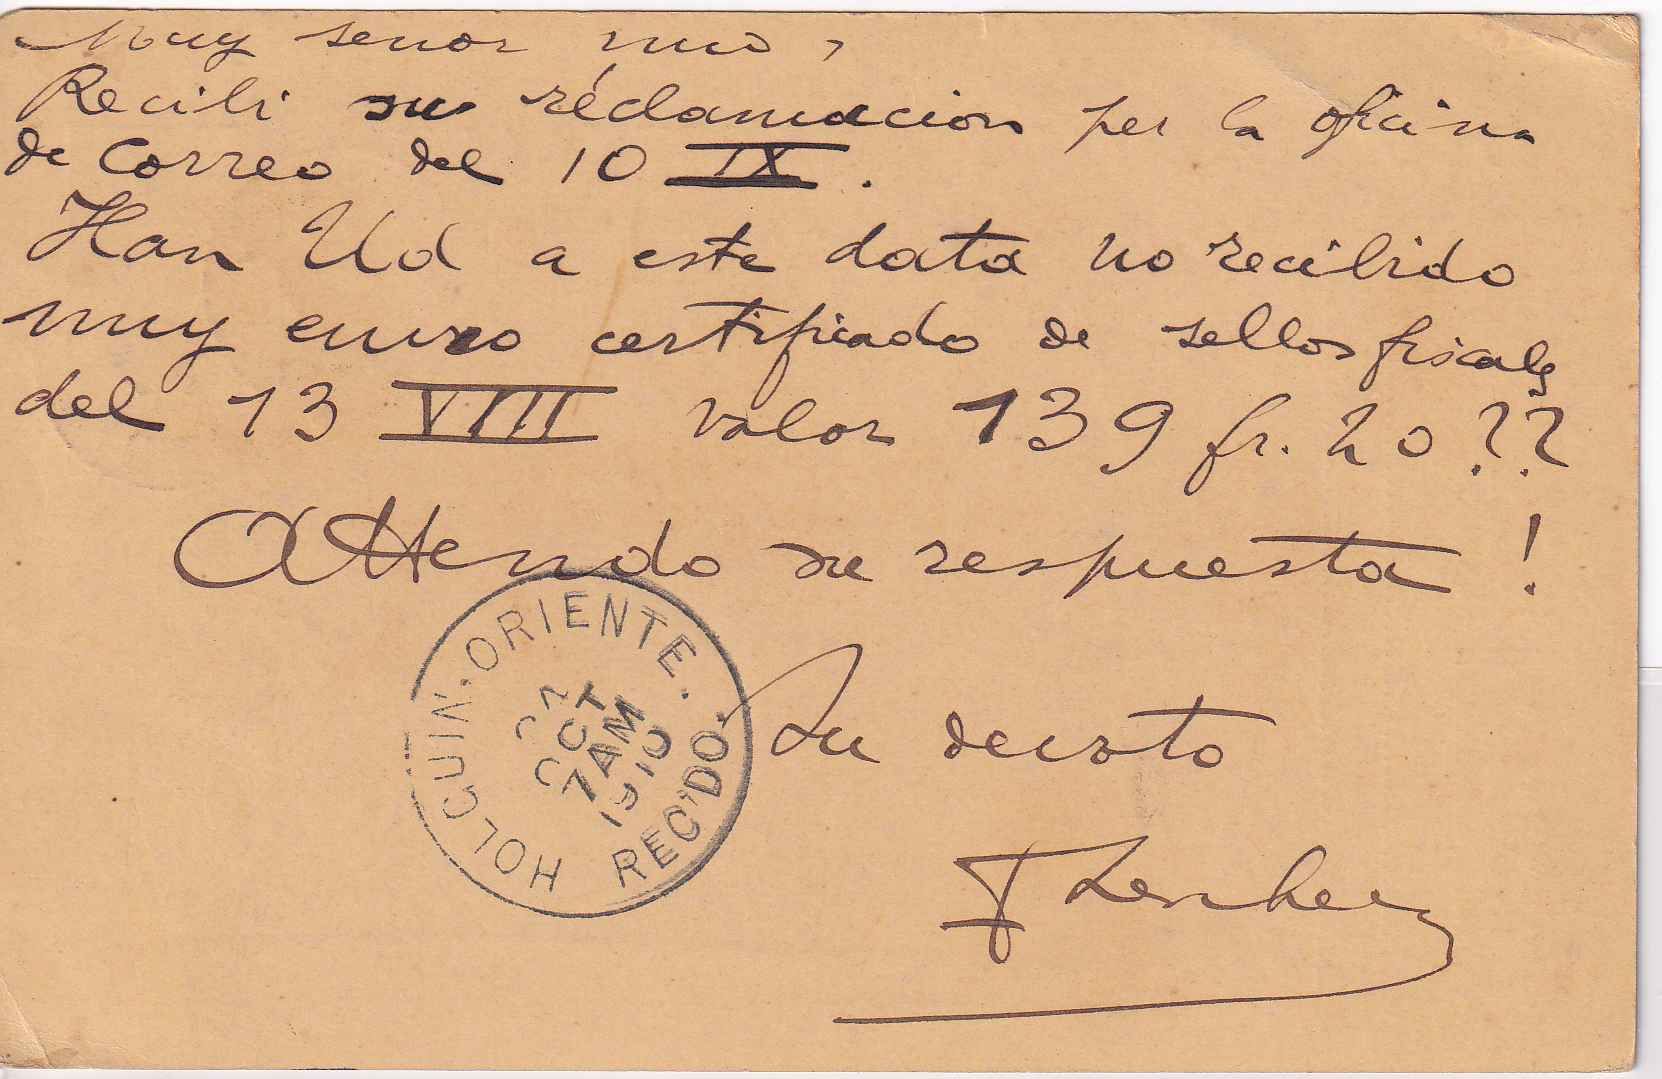 Muy senor mio,
Recibi su réclamacion per la oficina
de Correo del 10 IX.
Han Ud a este data no recibido
muy envio certificado de sellos fiscales
del 13 VIII valor 139 fr. 20 ??
Attendo su respuesta !
Su devoto
HOLGUIN. ORIENTE.
OCT
7 AM
1910
REC'DO.